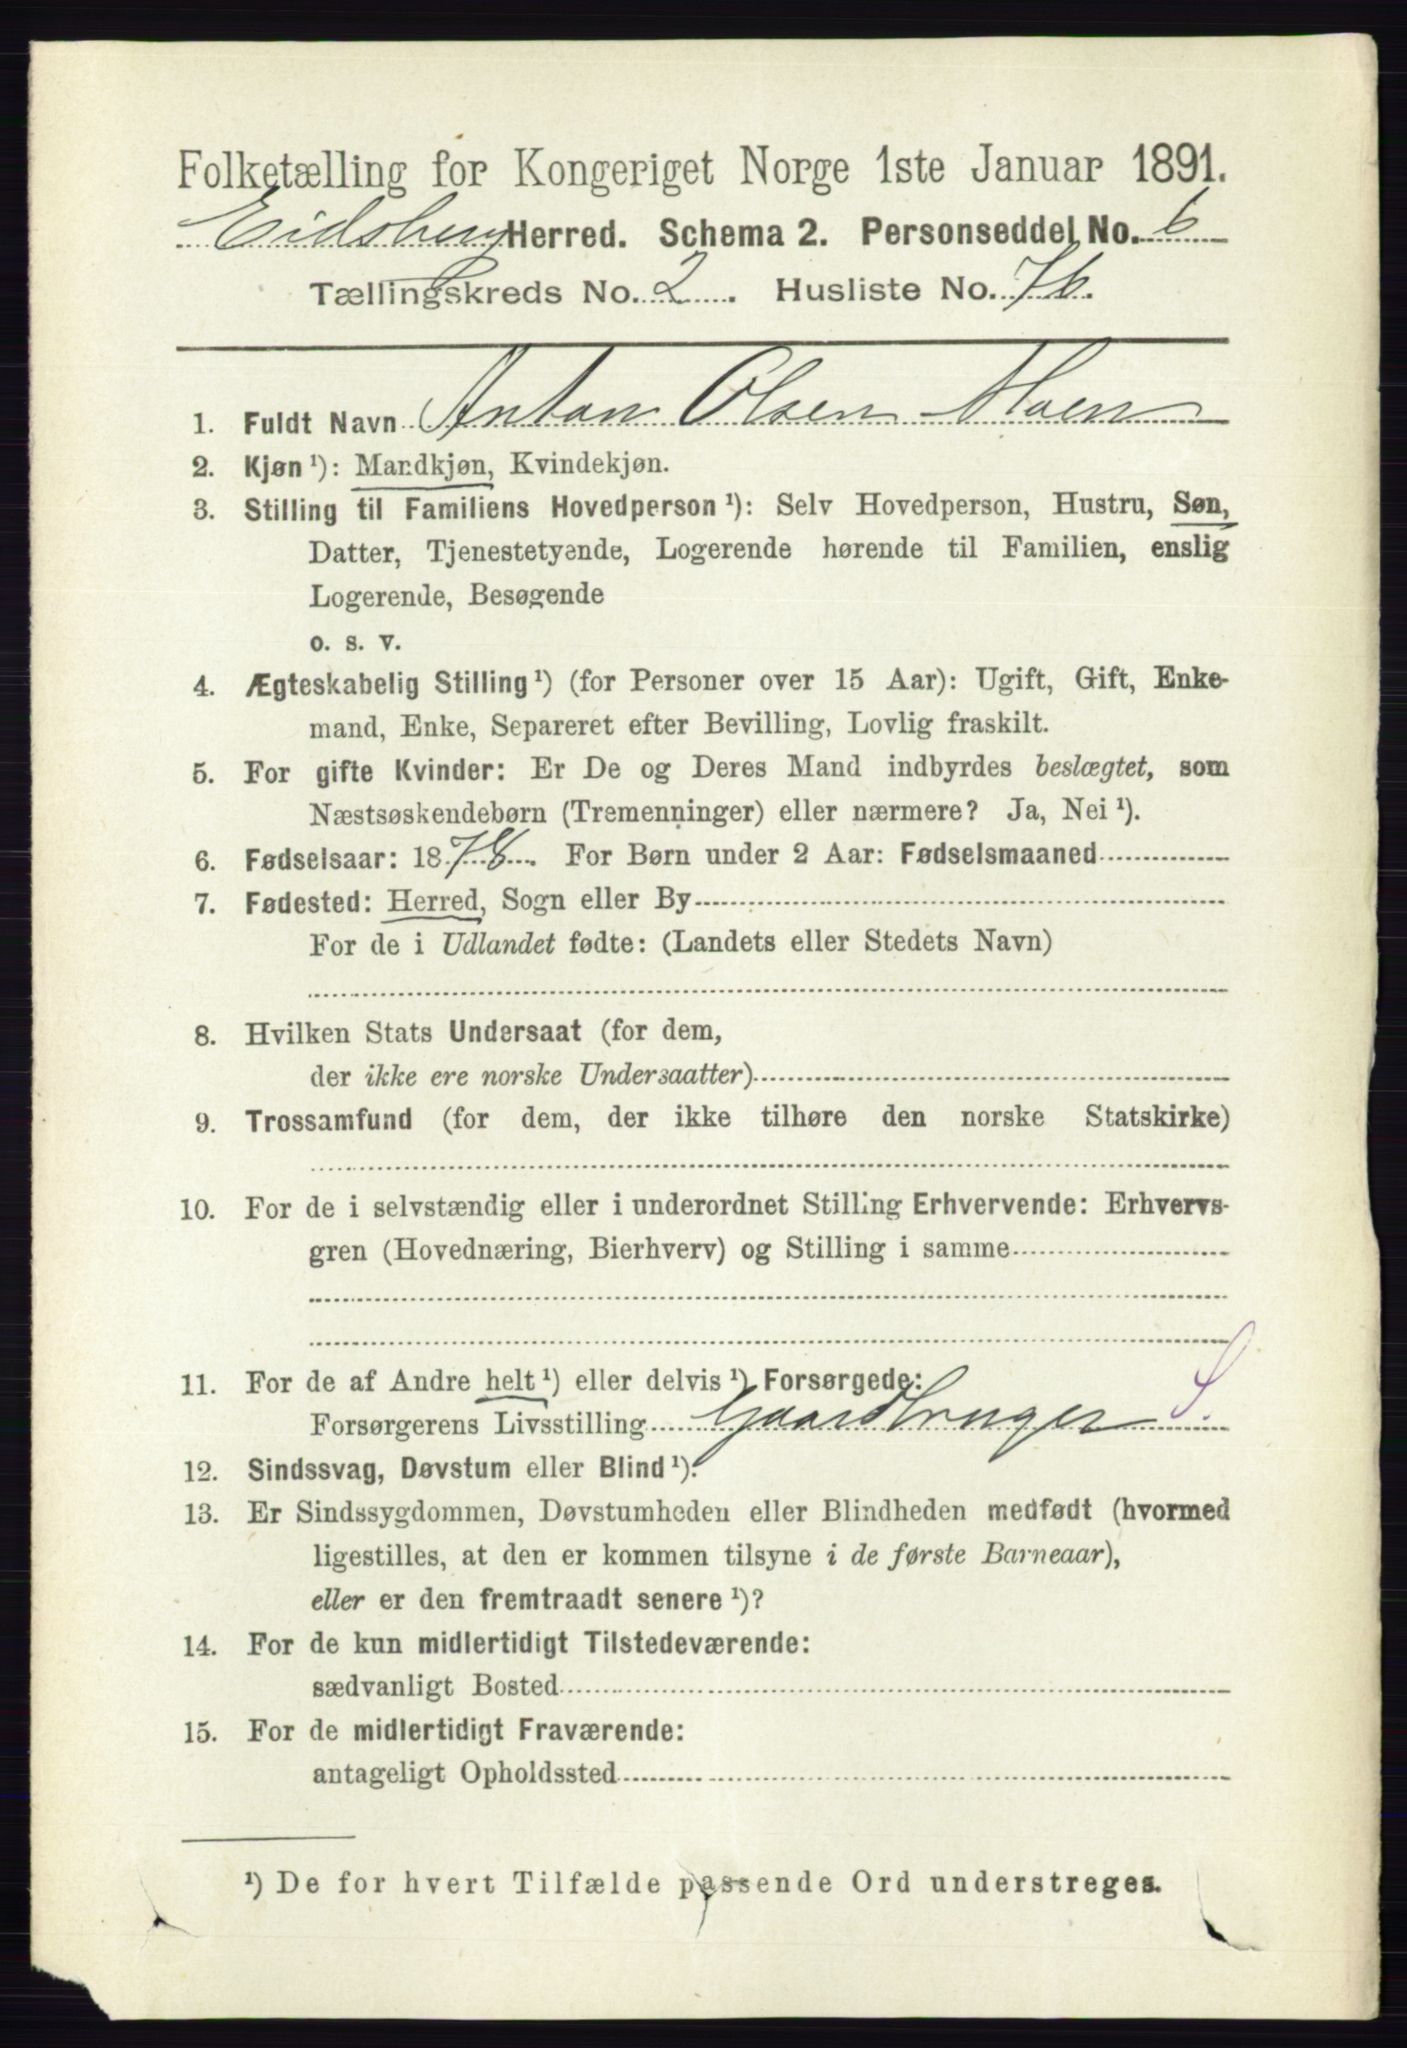 Folketælling for Kongeriget Norge 1ste Januar 1891.
Eidsberg Herred. Schema 2. Personseddel No. 6
Tællingskreds No. 2. Husliste No. 76.
1. Fuldt Navn Anton Olsen Moen
2. Kjøn ¹): Mandkjøn, Kvindekjøn.
3. Stilling til Familiens Hovedperson ¹): Selv Hovedperson, Hustru, Søn,
Datter, Tjenestetyende, Logerende hørende til Familien, enslig
Logerende, Besøgende
o. s. v.
4. Ægteskabelig Stilling ¹) (for Personer over 15 Aar): Ugift, Gift, Enke-
mand, Enke, Separeret efter Bevilling, Lovlig fraskilt.
5. For gifte Kvinder: Er De og Deres Mand indbyrdes beslægtet, som
Næstsøskendebørn (Tremenninger) eller nærmere? Ja, Nei ¹).
6. Fødselsaar: 1878. For Børn under 2 Aar: Fødselsmaaned
7. Fødested: Herred, Sogn eller By
For de i Udlandet fødte: (Landets eller Stedets Navn)
8. Hvilken Stats Undersaat (for dem,
der ikke ere norske Undersaatter)
9. Trossamfund (for dem, der ikke tilhøre den norske Statskirke)
10. For de i selvstændig eller i underordnet Stilling Erhvervende: Erhvervs-
gren (Hovednæring, Bierhverv) og Stilling i samme
11. For de af Andre helt ¹) eller delvis ¹) Forsørgede:
Forsørgerens Livsstilling Gaardbruger S.
12. Sindssvag, Døvstum eller Blind ¹).
13. Er Sindssygdommen, Døvstumheden eller Blindheden medfødt (hvormed
ligestilles, at den er kommen tilsyne i de første Barneaar),
eller er den fremtraadt senere ¹)?
14. For de kun midlertidigt Tilstedeværende:
sædvanligt Bosted
15. For de midlertidigt Fraværende:
antageligt Opholdssted
¹) De for hvert Tilfælde passende Ord understreges.